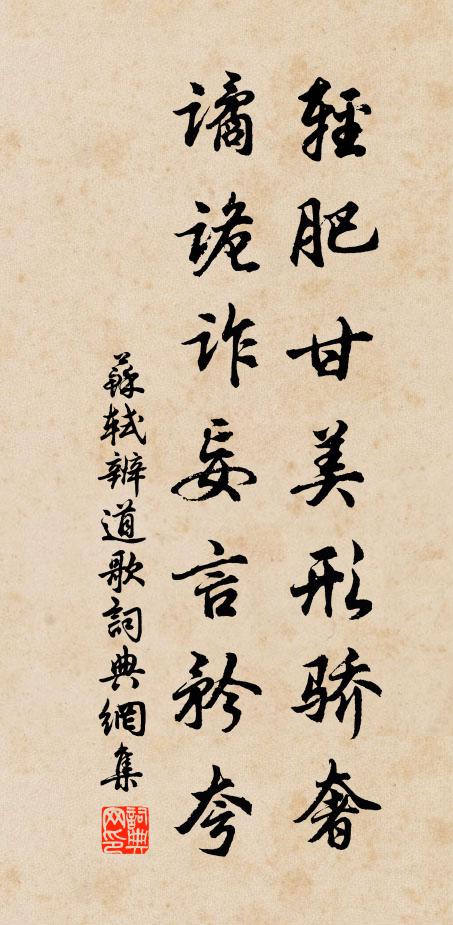 輕肥甘美形骄奢
譎詭诈妄言矜夸
蘇轼辨道歌詞典網集
詞典网印